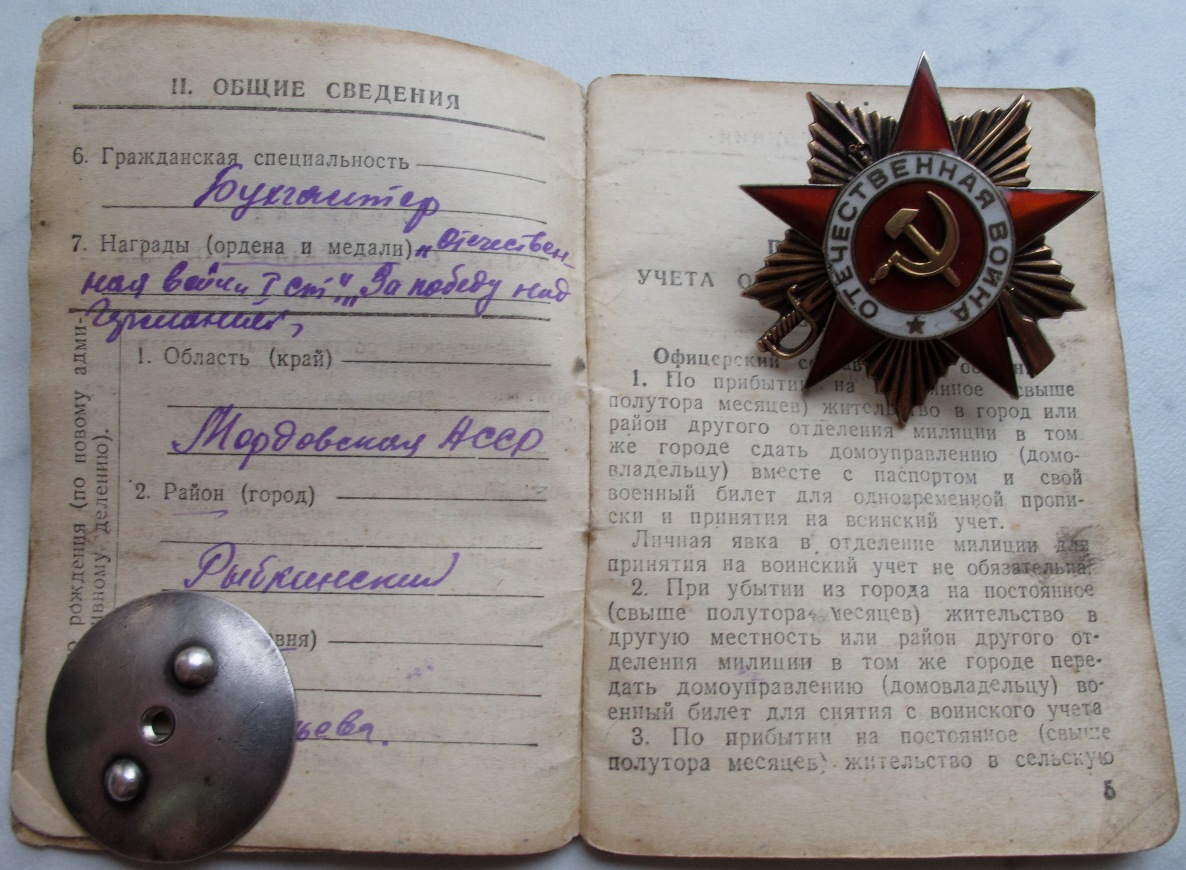 II. ОБЩИЕ СВЕДЕНИЯ
6. Гражданская специальность
Бухгалтер
7. Награды (ордена и медали) „Отечествен-
ная войны I ст" „За победу над
Германией",
рождения (по новому адми-
ивному делению).
1. Область (край)
Мордовская АССР
2. Район (город)
Рыбкинский
вня)
ьева.
УЧЕТА О
Офицерский
1. По прибытии на свыше
полутора месяцев) жительство в город или
район другого отделения милиции в том
же городе сдать домоуправлению (домо-
владельцу) вместе с паспортом и свой
военный билет для одновременной пропи-
ски и принятия на воинский учет.
Личная явка в отделение милиции для
принятия на воинский учет не обязательна.
2. При убытии из города на постоянное
(свыше полутора месяцев) жительство в
другую местность или район другого от-
деления милиции в том же городе пере-
дать домоуправлению (домовладельцу) во-
енный билет для снятия с воинского учета
3. По прибытии на постоянное (свыше
полутора месяцев) жительство в сельскую
5
ОТЕЧЕСТВЕННАЯ ВОЙНА